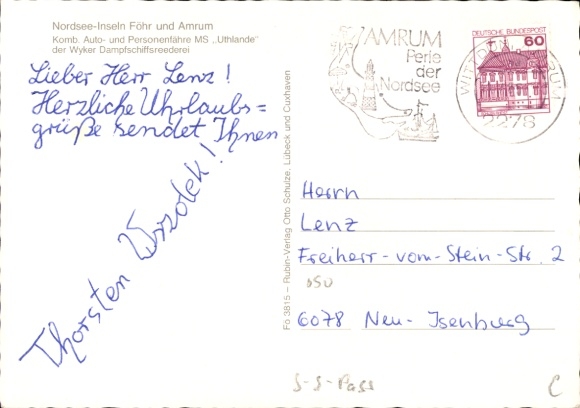 Nordsee-Inseln Föhr und Amrum
Komb. Auto- und Personenfähre MS „Uthlande"
der Wyker Dampfschiffsreederei
Lieber Herr Lenz!
Herzliche Uhrlaubs=
grüße sendet Ihnen
Thorsten Wrzolek!
Fo 3815 – Rubin-Verlag Otto Schulze, Lübeck und Cuxhaven
AMRUM
Perle
der
Nordsee
DEUTSCHE BUNDESPOST
60
2278
Herrn
Lenz
Freiherr-vom-Stein-Str. 2
6078 Neu-Isenburg
S-S-Pass
C